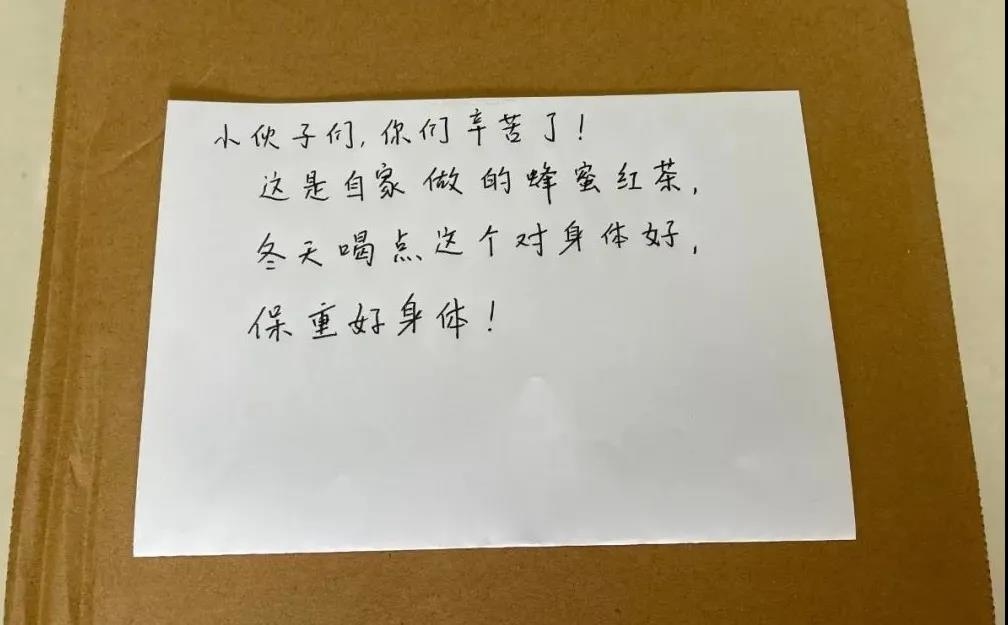 小伙子们,你们辛苦了!
这是自家做的蜂蜜红茶,
冬天喝点这个对身体好,
保重好身体!